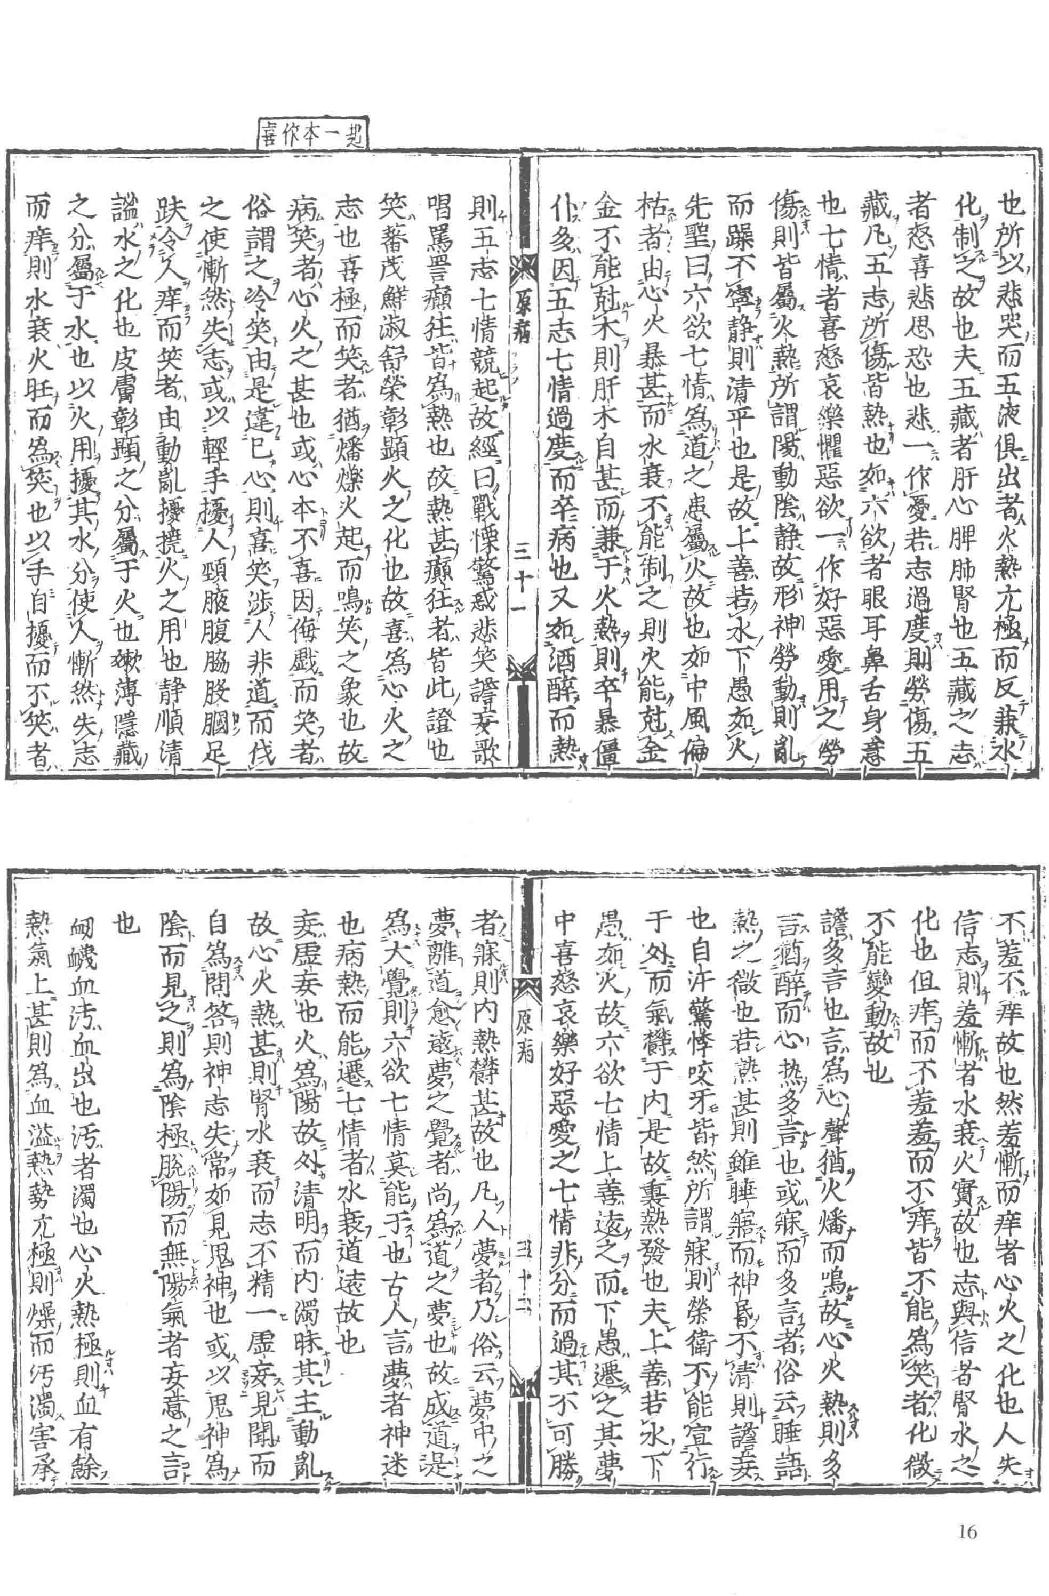 起一本作喜
也所以悲哭而五液俱出者火熱亢極而反兼水
化制之故也夫五藏者肝心脾肺腎也五藏之志
者怒喜悲思恐也悲一作憂若志過度則勞傷五
藏凡五志所傷皆熱也如六欲者眼耳鼻舌身意
也七情者喜怒哀樂懼惡欲一作好惡愛用之勞
傷則皆屬火熱所謂陽動陰静故形神勞動則亂
而躁不寧静則清平也是故上善若水下愚如火
先聖曰六欲七情為道之患屬火故也如中風偏
枯者由心火暴甚而水衰不能制之則火能尅金
金不能尅木則肝木自甚而兼于火熱則卒暴僵
仆多因五志七情過度而卒病也又如酒醉而熱
原病 三十一
則五志七情競起故經曰戰慄驚惑悲笑譫妄歌
唱罵詈癲狂皆為熱也故熱甚癲狂者皆此證也
笑蕃茂鮮淑舒榮彰顯火之化也故喜為心火之
志也喜極而笑者猶燔爍火起而鳴笑之象也故
病笑者心火之甚也或心本不喜因侮戲而笑者
俗謂之冷笑由是違已心則喜笑涉人非道而伐
之使慚然失志或以輕手擾人頸腋腹脇股膕足
趺冷人痒而笑者由動亂擾撓火之用也静順清
謐水之化也皮膚彰顯之分屬于火也嫰薄隱藏
之分屬于水也以火用擾其水分使人慚然失志
而痒則水衰火旺而為笑也以手自擾而不笑者
不羞不痒故也然羞慚而痒者心火之化也人失
信志則羞慚者水衰火實故也志與信者腎水之
化也但痒而不羞羞而不痒皆不能為笑者化微
不能變動故也
譫多言也言為心聲猶火燔而鳴故心火熱則多
言猶醉而心热多言也或寐而多言者俗云睡語
熱之微也若熱甚則雖睡寤而神昬不清則譫妄
也自汗驚悸咬牙皆然所謂寐則榮衛不能宣行
于外而氣欝于内是故裏熱發也夫上善若水下
愚如火故六欲七情上善逺之而下愚遷之其夢
中喜怒哀樂好惡愛之七情非分而過其不可勝
原病 三十二
者寐則内熱欝甚故也凡人夢者乃俗云夢中之
夢離道愈逺夢之覺者尚為道之夢也故成道是
為大覺則六欲七情莫能于也古人言夢者神迷
也病熱而能遷七情者水衰道逺故也
妄虛妄也火為陽故外清明而内濁昧其主動亂
故心火熱甚則腎水衰而志不精一虛妄見聞而
自為問答則神志失常如見鬼神也或以鬼神為
陰而見之則為陰極脫陽而無陽氣者妄意之言
也
衂衊血汚血出也汚者濁也心火熱極則血有餘
熱氣上甚則為血溢熱勢亢極則燥而汚濁害承
16